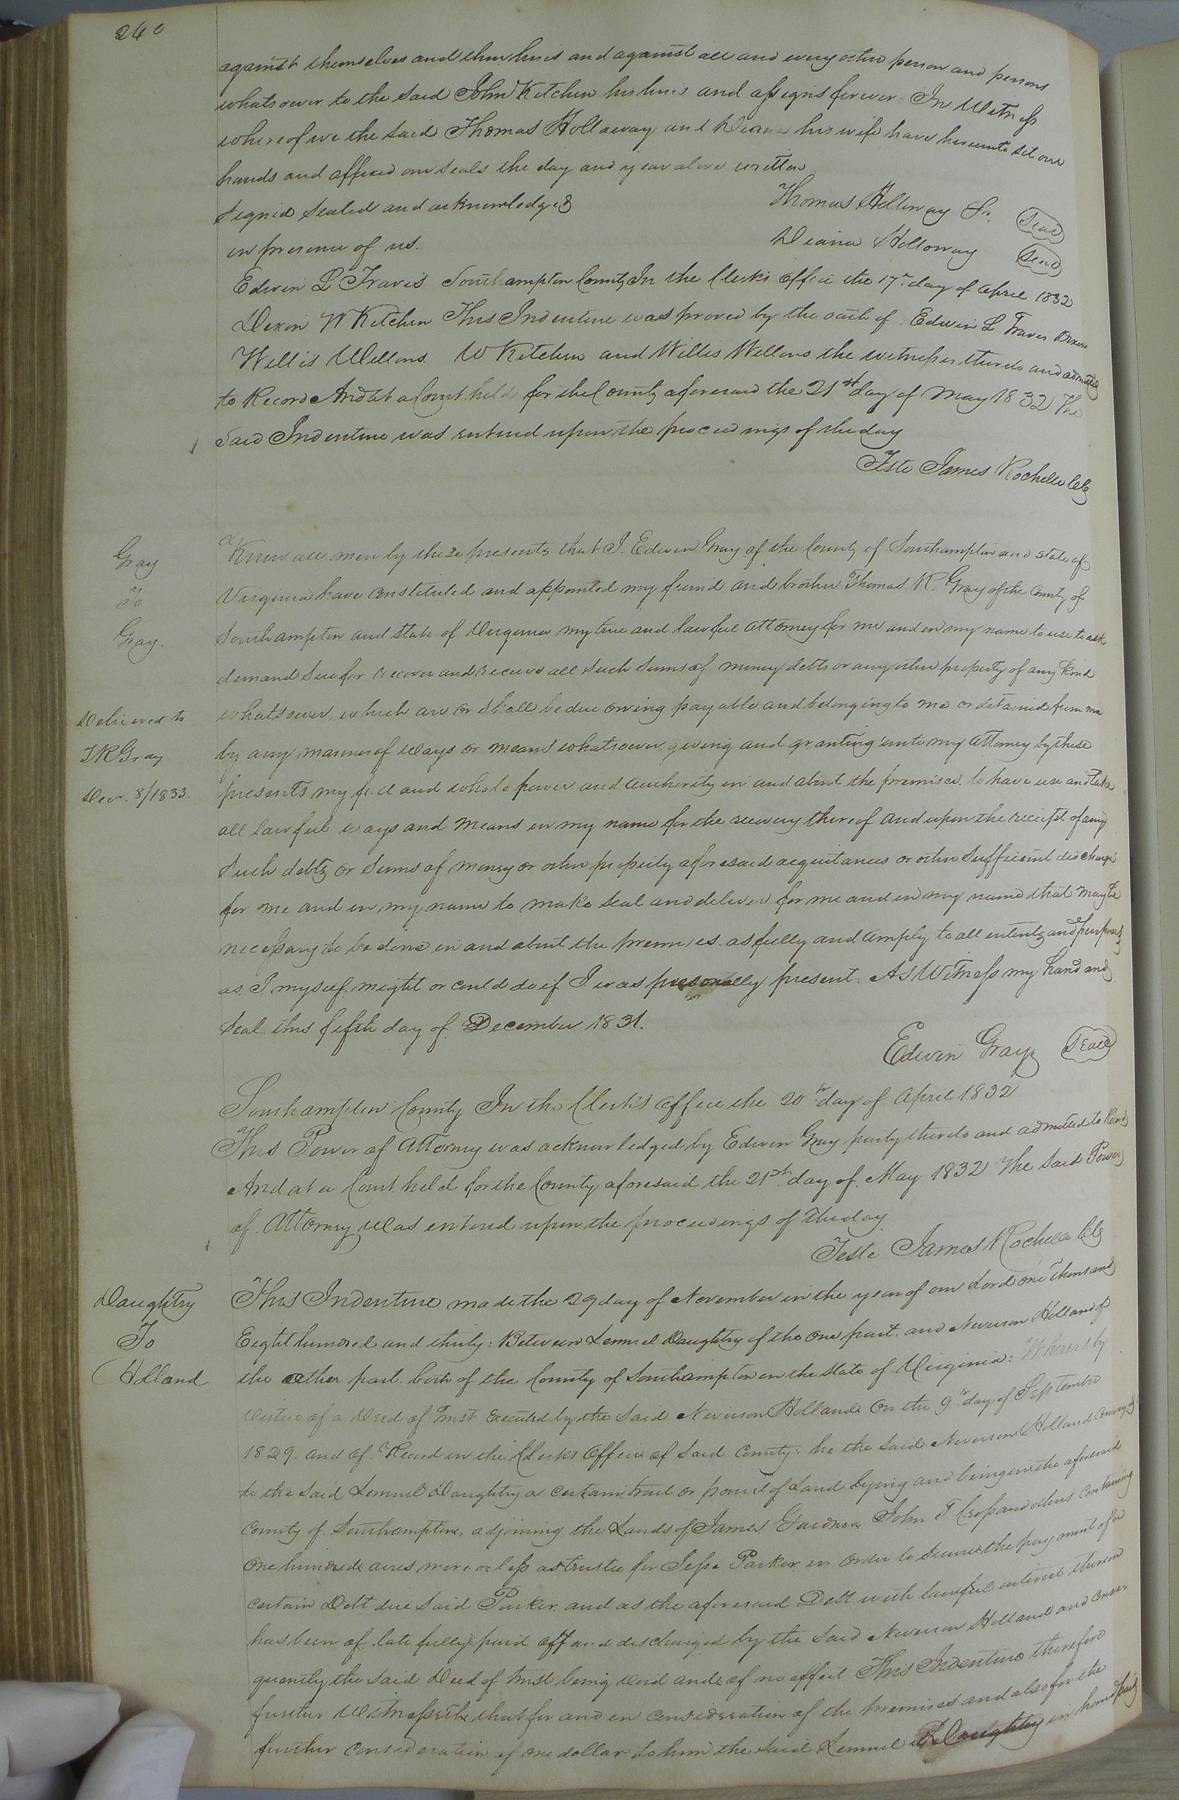 240
against themselves and their heirs and against all and every other person and persons
whatsoever to the said John Kitchen his heirs and assigns forever. In Witness
whereof we the said Thomas Holloway and Diana his wife have hereunto set our
hands and affixed our seals the day and year above written
Signed Sealed and acknowledged Thomas Holloway Sr. Seal
in presence of us. Diana Holloway Seal
Edwin L Travis Southampton County In the Clerk's Office the 17th day of April 1832
Dixon W Kitchen This Indenture was proved by the oath of Edwin L Travis Dixon
Willis Wellons W Kitchen and Willis Wellons the witnesses thereto and admitted
to Record And at a Court held for the County aforesaid the 21st day of May 1832 The
Said Indenture was entered upon the proceedings of the day
Teste James Rochelle Clk
Gray
To
Gray.
Delivered to
T R Gray
Decr. 8/1833.
Know all men by these presents that I Edwin Gray of the County of Southampton and State of
Virginia have constituted and appointed my friend and brother Thomas R. Gray of the County of
Southampton and State of Virginia my true and lawful Attorney for me and in my name to use to ask
demand Sue for recover and receive all Such Sums of money debts or any other property of any kind
whatsoever which are or Shall be due owing payable and belonging to me or detained from me
by any manner of ways or means whatsoever, giving and granting unto my Attorney by these
presents my full and whole power and authority in and about the premises, to have use and take
all lawful ways and means in my name for the recovery thereof and upon the receipt of any
Such debts or Sums of money or other property aforesaid acquittances or other Sufficient discharges
for me and in my name to make Seal and deliver for me and in my name that may be
necessary to be done in and about the premises. as fully and amply to all intents and purposes
as I myself might or could do if I was personally present. As Witness my hand and
Seal this fifth day of December 1831.
Edwin Gray Seal
Southampton County In the Clerk's Office the 20th day of April 1832
This Power of Attorney was acknowledged by Edwin Gray party thereto and admitted to Record
And at a Court held for the County aforesaid the 21st day of May 1832 The Said Power
of Attorney was entered upon the proceedings of the day
Teste James Rochelle Clk
Daughtry
To
Holland
This Indenture made the 29 day of November in the year of our Lord one Thousand
Eight hundred and thirty: Between Lemuel Daughtry of the One part. and Neverson Holland of
the other part both of the County of Southampton in the State of Virginia: Whereas by
virtue of a Deed of Trust executed by the Said Neverson Holland On the 9th day of September
1829. and of Record in the Clerks Office of Said County: he the Said Neverson Holland conveyed
to the Said Lemuel Daughtry a certain tract or parcel of Land lying and being in the aforesaid
County of Southampton, adjoining the Lands of James Gardner John T Cross and others containing
One hundred acres more or less as trustee for Jesse Parker in Order to Secure the payment of a
certain Debt due Said Parker. and as the aforesaid Debt with lawful interest thereon
has been of late fully paid off and discharged by the Said Neverson Holland and conse-
quently the Said Deed of trust being Void and of no effect This Indenture therefore
further Witnesseth that for and in consideration of the premises and also for the
further consideration of one dollar to him the Said Lemuel Daughtry in hand paid